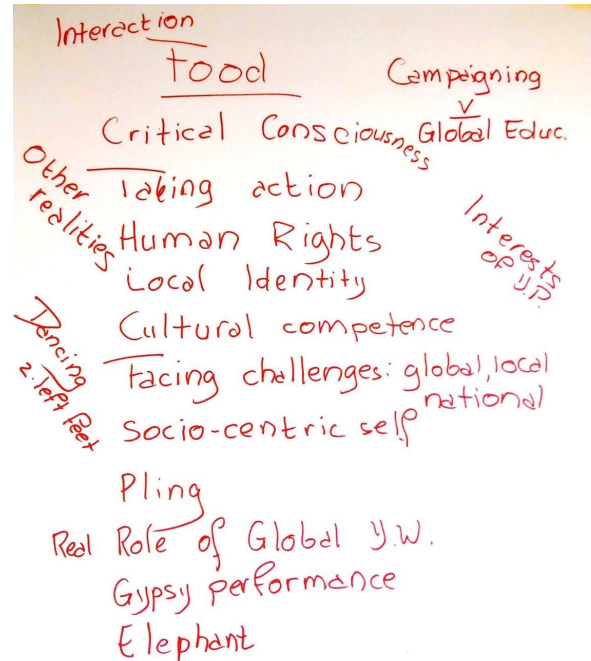 Interaction
Food
Campaigning
V
Critical Consciousness Global Educ.
Other realities
Taking action
Human Rights
Interests of Y.P.
Local Identity
Cultural competence
Dancing
2 left feet
Facing challenges: global, local
national
Socio-centric self
Pling
Real Role of Global Y.W.
Gypsy performance
Elephant